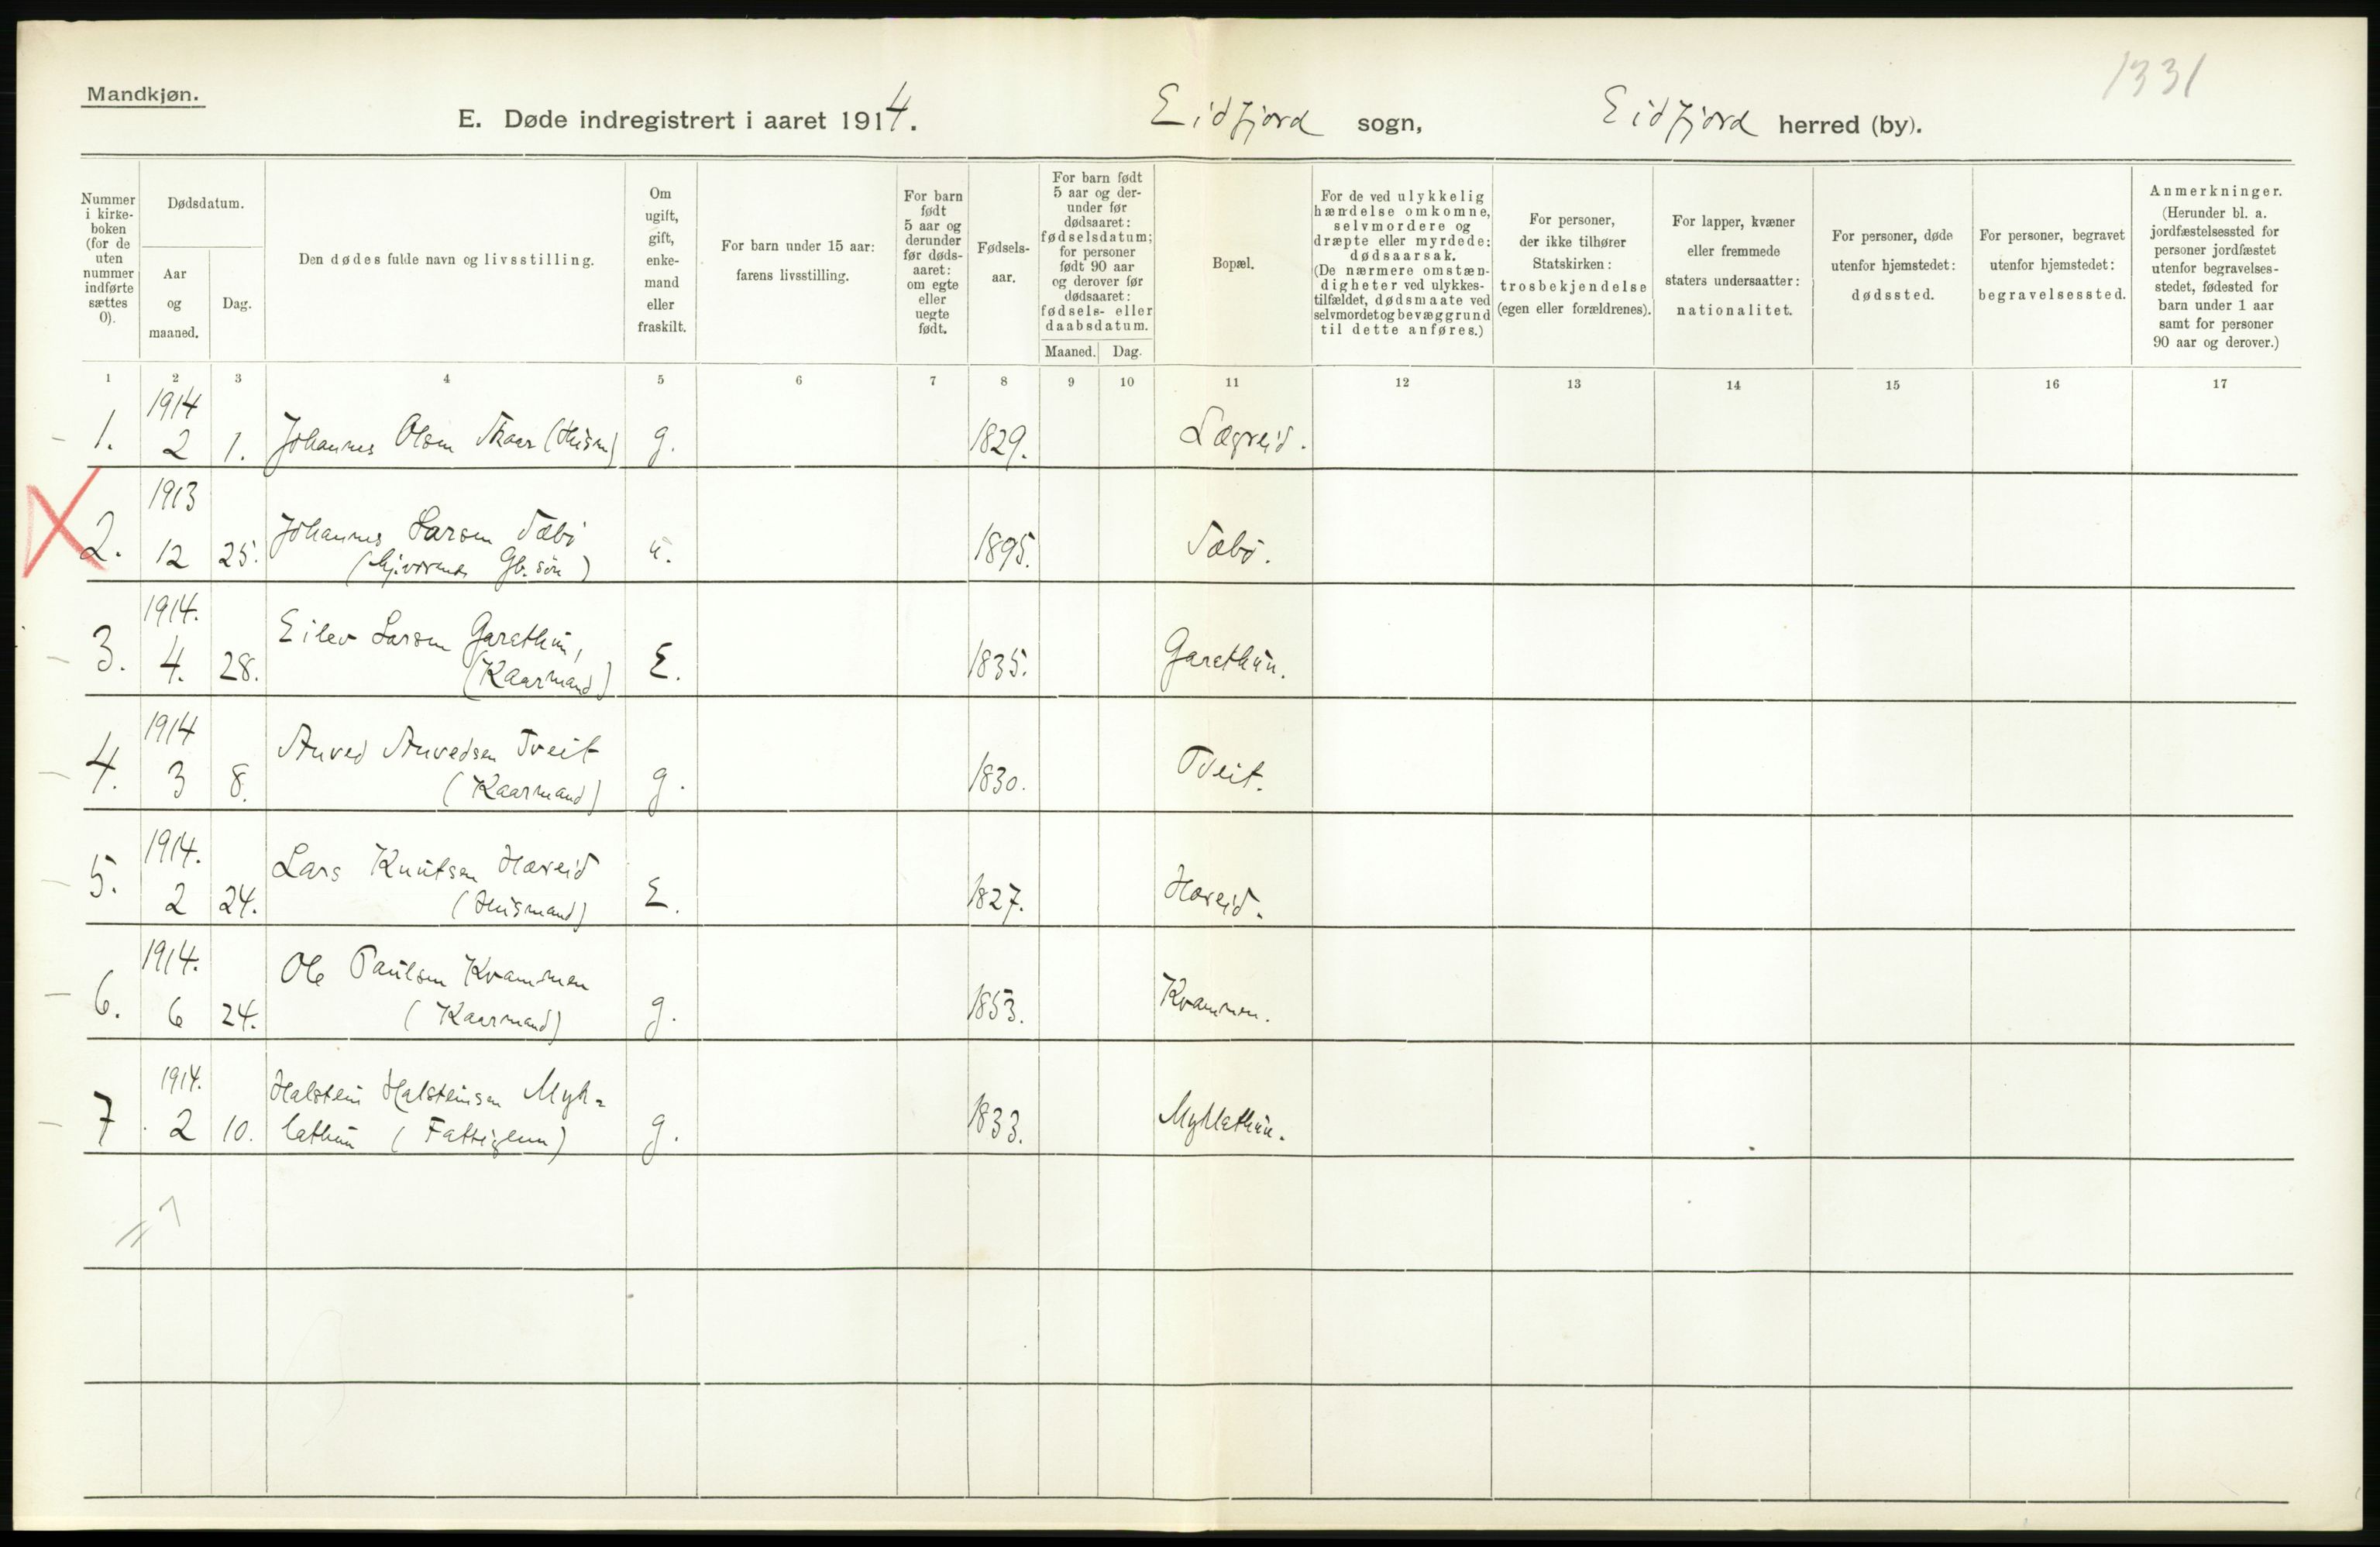 1331
Mandkjøn.
E. Døde indregistrert i aaret 1914. Eidfjord sogn, Eidfjord herred (by).
Nummer i kirke- boken (for de uten nummer indførte sættes 0).
Dødsdatum.
Aar og maaned.
Dag.
Den dødes fulde navn og livsstilling.
Om ugift, gift, enke- mand eller fraskilt.
For barn under 15 aar: farens livsstilling.
For barn født 5 aar og derunder før døds- aaret: om egte eller uegte født.
Fødsels- aar.
For barn født 5 aar og der- under før dødsaaret: fødselsdatum; for personer født 90 aar og derover før dødsaaret: fødsels- eller daabsdatum.
Maaned. Dag.
Bopæl.
For de ved ulykkelig hændelse omkomne, selvmordere og dræpte eller myrdede: dødsaarsak. (De nærmere omstæn- digheter ved ulykkes- tilfældet, dødsmaate ved selvmordet og bevæggrund til dette anføres.)
For personer, der ikke tilhører Statskirken: trosbekjendelse (egen eller forældrenes).
For lapper, kvæner eller fremmede staters undersaatter: nationalitet.
For personer, døde utenfor hjemstedet: dødssted.
For personer, begravet utenfor hjemstedet: begravelsessted.
Anmerkninger. (Herunder bl. a. jordfæstelsessted for personer jordfæstet utenfor begravelses- stedet, fødested for barn under 1 aar samt for personer 90 aar og derover.)
1 2 3 4 5 6 7 8 9 10 11 12 13 14 15 16 17
1914
1. 2 1. Johannes Olsen Skaar (Husm) g. 1829. Lægreid.
1913
2. 12 25. Johannes Larsen Sæbø u. 1895. Sæbø.
(hj.værende Gb. søn)
1914.
3. 4. 28. Eilev Larsen Garathun, E. 1835. Garathun.
(Kaarmand)
1914
4. 3 8. Anved Anvedsen Tveit g. 1830. Tveit.
(Kaarmand)
1914.
5. 2 24. Lars Knutsen Hæreid E. 1827. Hæreid.
(Husmand)
1914.
6. 6 24. Ole Paulsen Kvammen g. 1853. Kvammen.
(Kaarmand)
1914.
7 2 10. Halstein Halsteinsen Myk= g. 1833. Myklathun.
lathun (Fattiglem)
= 7